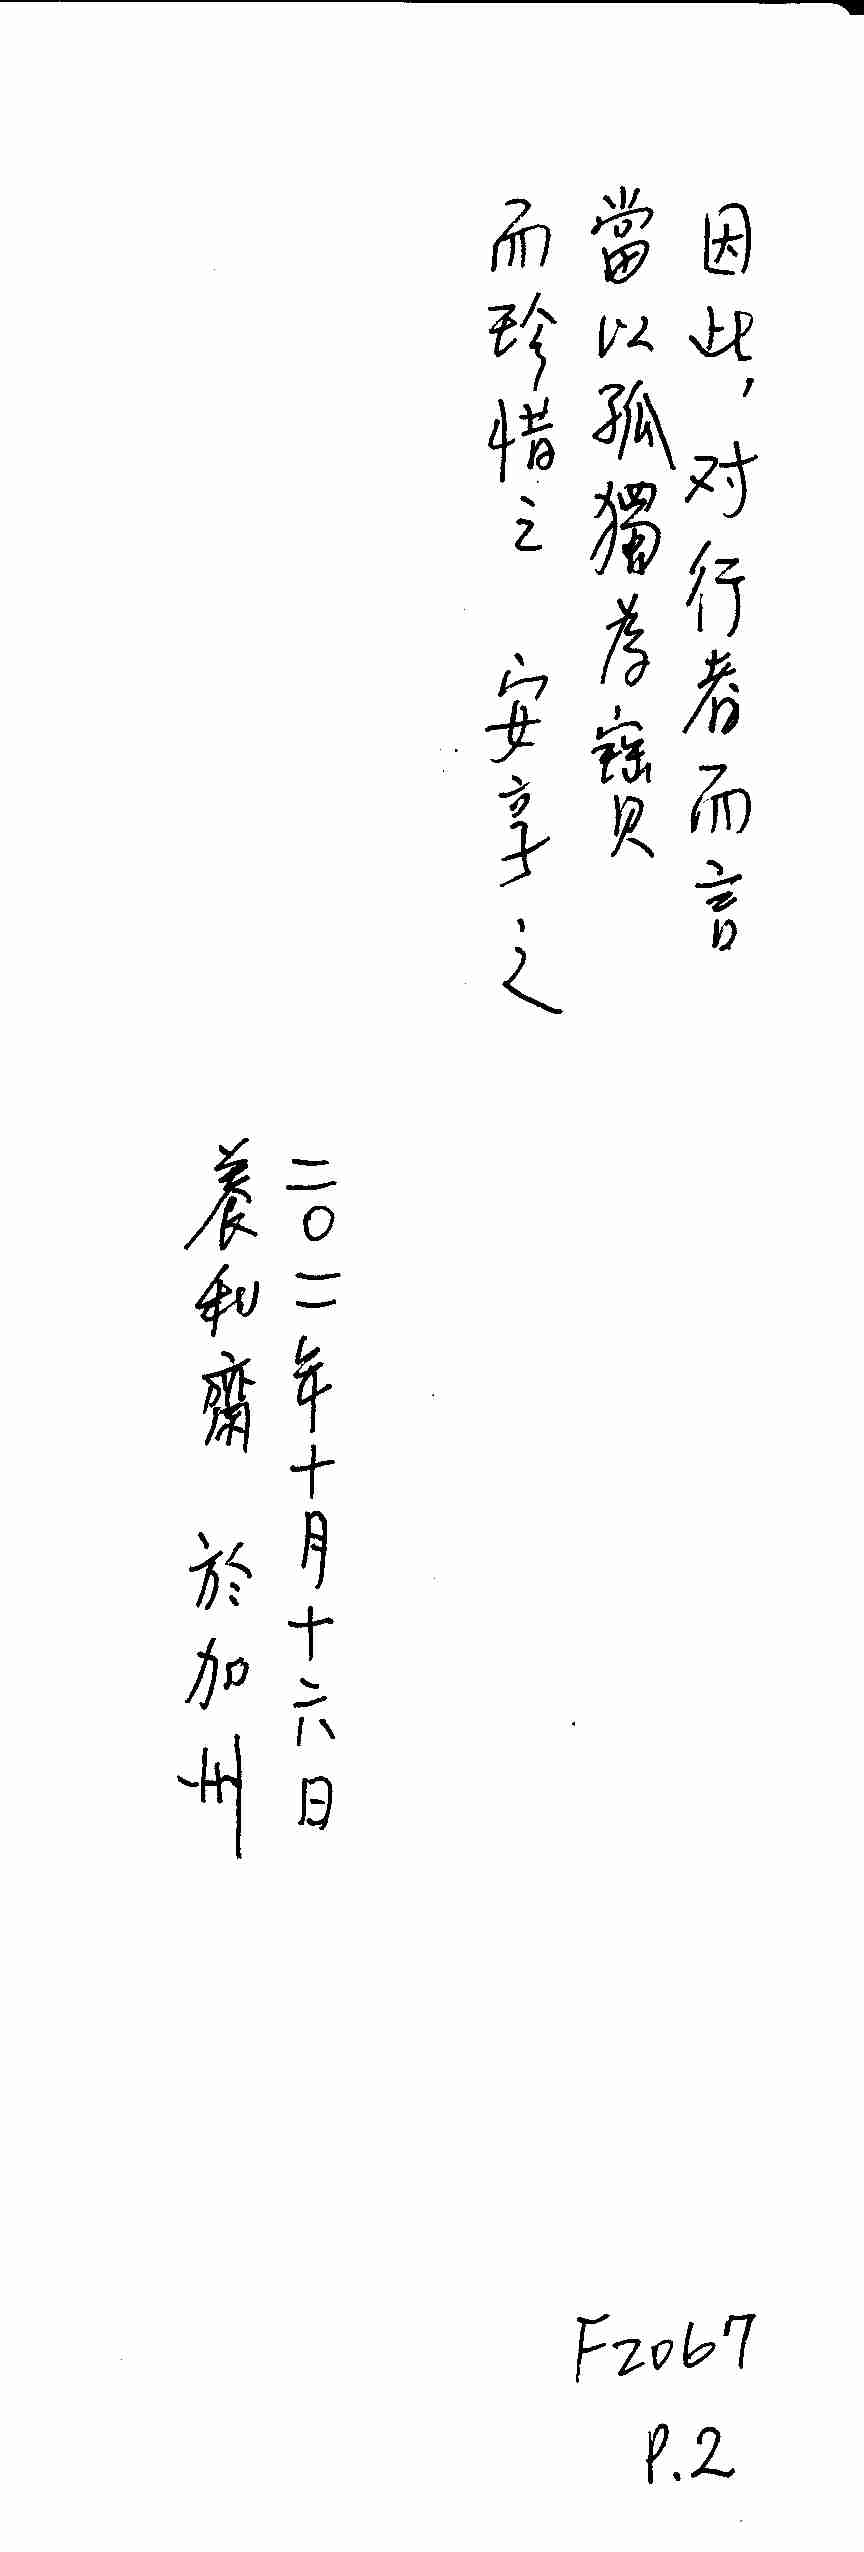 因此，对行者而言
當以孤獨為寶
而珍惜之 安享之
二〇一一年十月十六日
養和齋 於加州
F2067
P.2